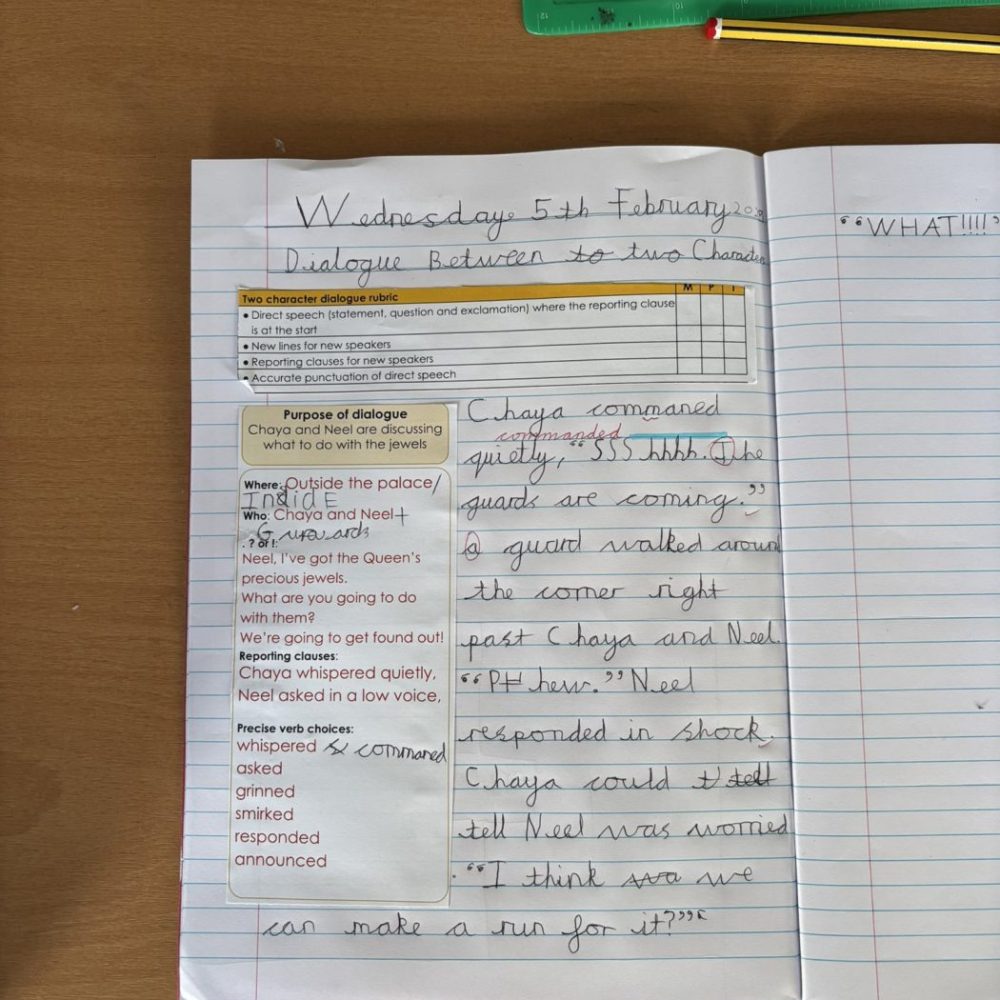 Wednesday 5th February
Dialogue Between to two Character
Two character dialogue rubric M P I
• Direct speech (statement, question and exclamation) where the reporting clause
is at the start
• New lines for new speakers
• Reporting clauses for new speakers
• Accurate punctuation of direct speech
Purpose of dialogue
Chaya and Neel are discussing
what to do with the jewels
Where: Outside the palace/
IndidE
Who: Chaya and Neel+
. ? or !:
Neel, I've got the Queen's
precious jewels.
What are you going to do
with them?
We're going to get found out!
Reporting clauses:
Chaya whispered quietly,
Neel asked in a low voice,
Precise verb choices:
whispered commaned
asked
grinned
smirked
responded
announced
Chaya commaned
commanded
quietly, “SSShhhh. The
guards are coming.”
a guard walked around
the corner right
past Chaya and Neel.
“PH hew.” Neel
responded in shock.
Chaya could t tell
tell Neel was worried
. “I think wa we
can make a run for it?”
“WHAT!!!!”
12 10